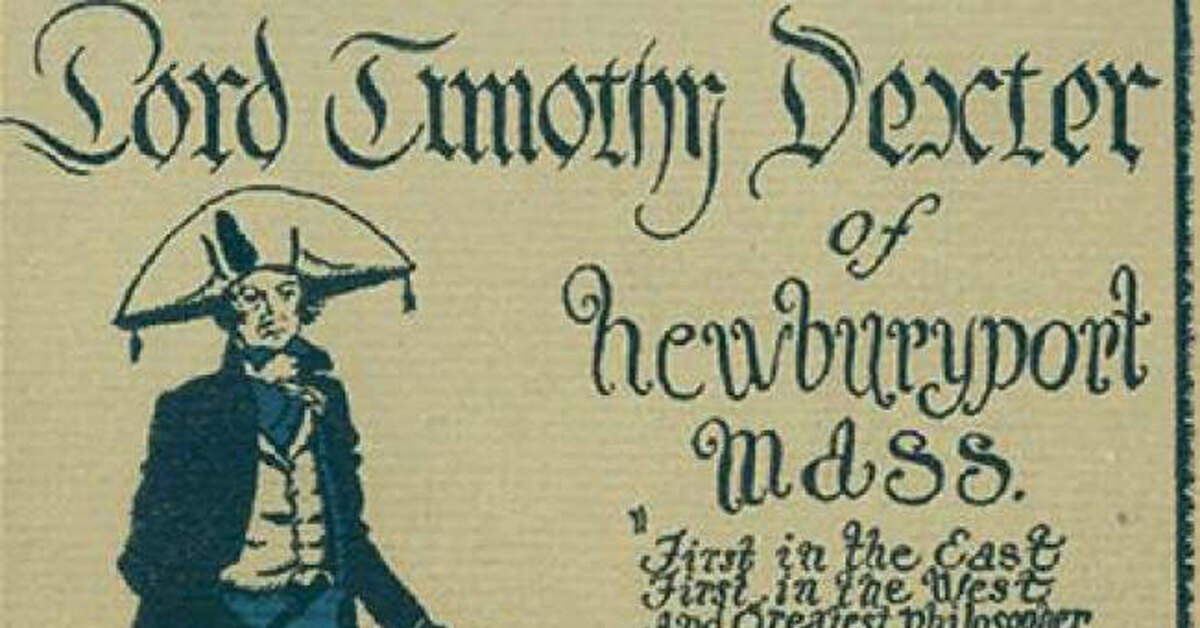 Lord Timothy Dexter
of
Newburyport
Mass.
"First in the East
First in the West
And Greatest Philosopher